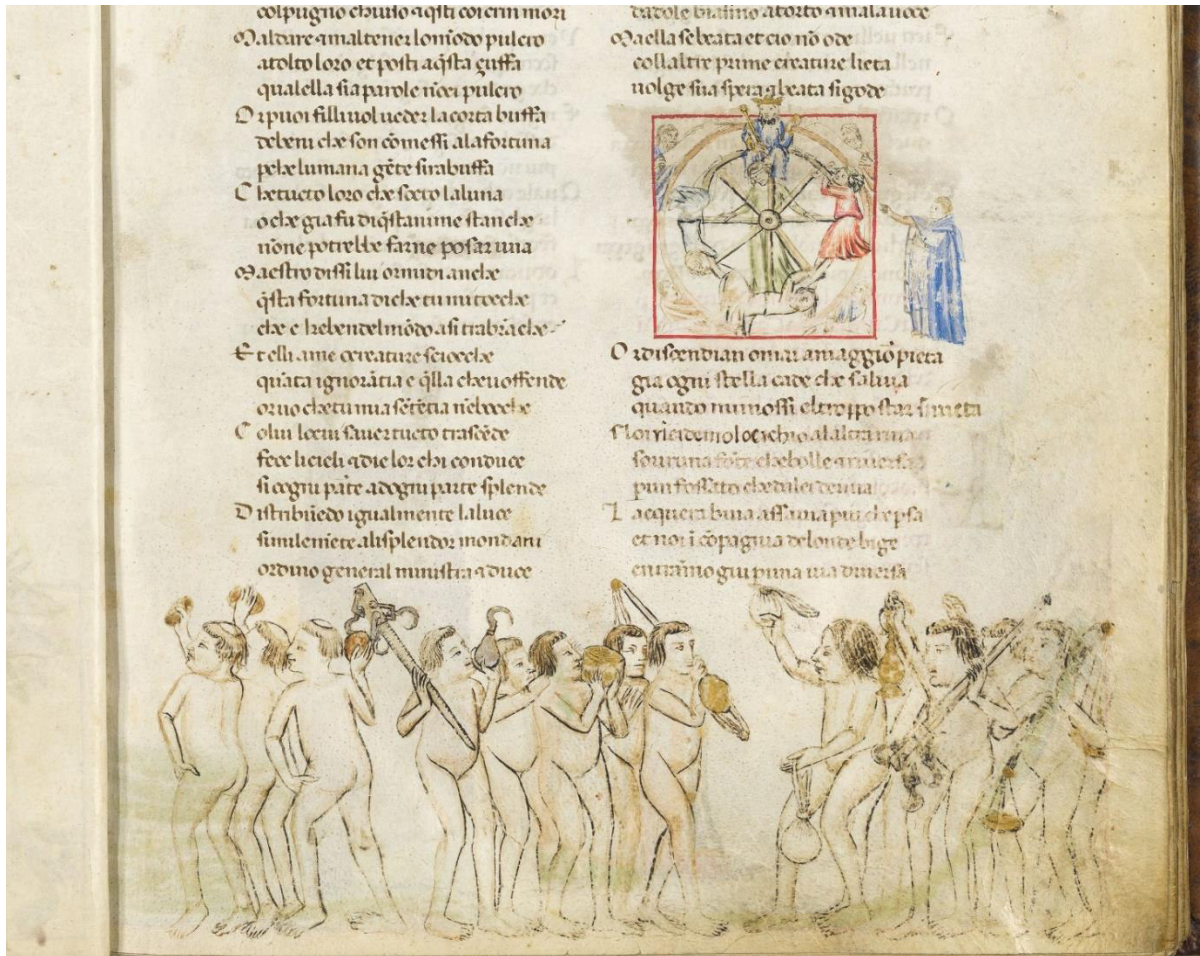 colpugno chiuso a q̄sti coi crin mori
Maldare a maltener lomōdo pulcro
a tolto loro et posti a q̄sta çuffa
qual ella sia parole nōci pulcro
Or puoi filli uol ueder la corta buffa
de beni che son cōmessi ala fortuna
p che lumana gēte si rabuffa
Che tucto loro che socto la luna
o che gia fu di q̄stanime stanche
nōne potrebbe farne posar una
Maestro dissi lui or mi di anche
q̄sta fortuna di che tu mi tocche
che e khe ben del mōdo a si tra brāche
Et elli ame o creature sciocche
quāta ignorātia e q̄lla che uoffende
or uo che tu mia sētētia nēbocche
Colui locui sauer tucto trascēde
fece li cieli a die lor chi conduce
si cogni parte ad ogni parte splende
Distribuēdo igualmente la luce
similemēte ali splendor mondani
ordino general ministra a duce
dadole biasmo a torto a mala uoce
Ma ella se beata et cio nō ode
coll altre prime creature lieta
uolge sua spera a beata si gode
Or discendian omai a maggior pieta
gia ogni stella cade che saliua
quando mi mossi el troppo star
locchio al altra riua
soura una fōte che bolle a riuersa
p un fossato che da lei deriua
Lacquera buia assai piu che psa
et noi ī cōpagnia de londe bige
entrāmo giu p una uia diuersa